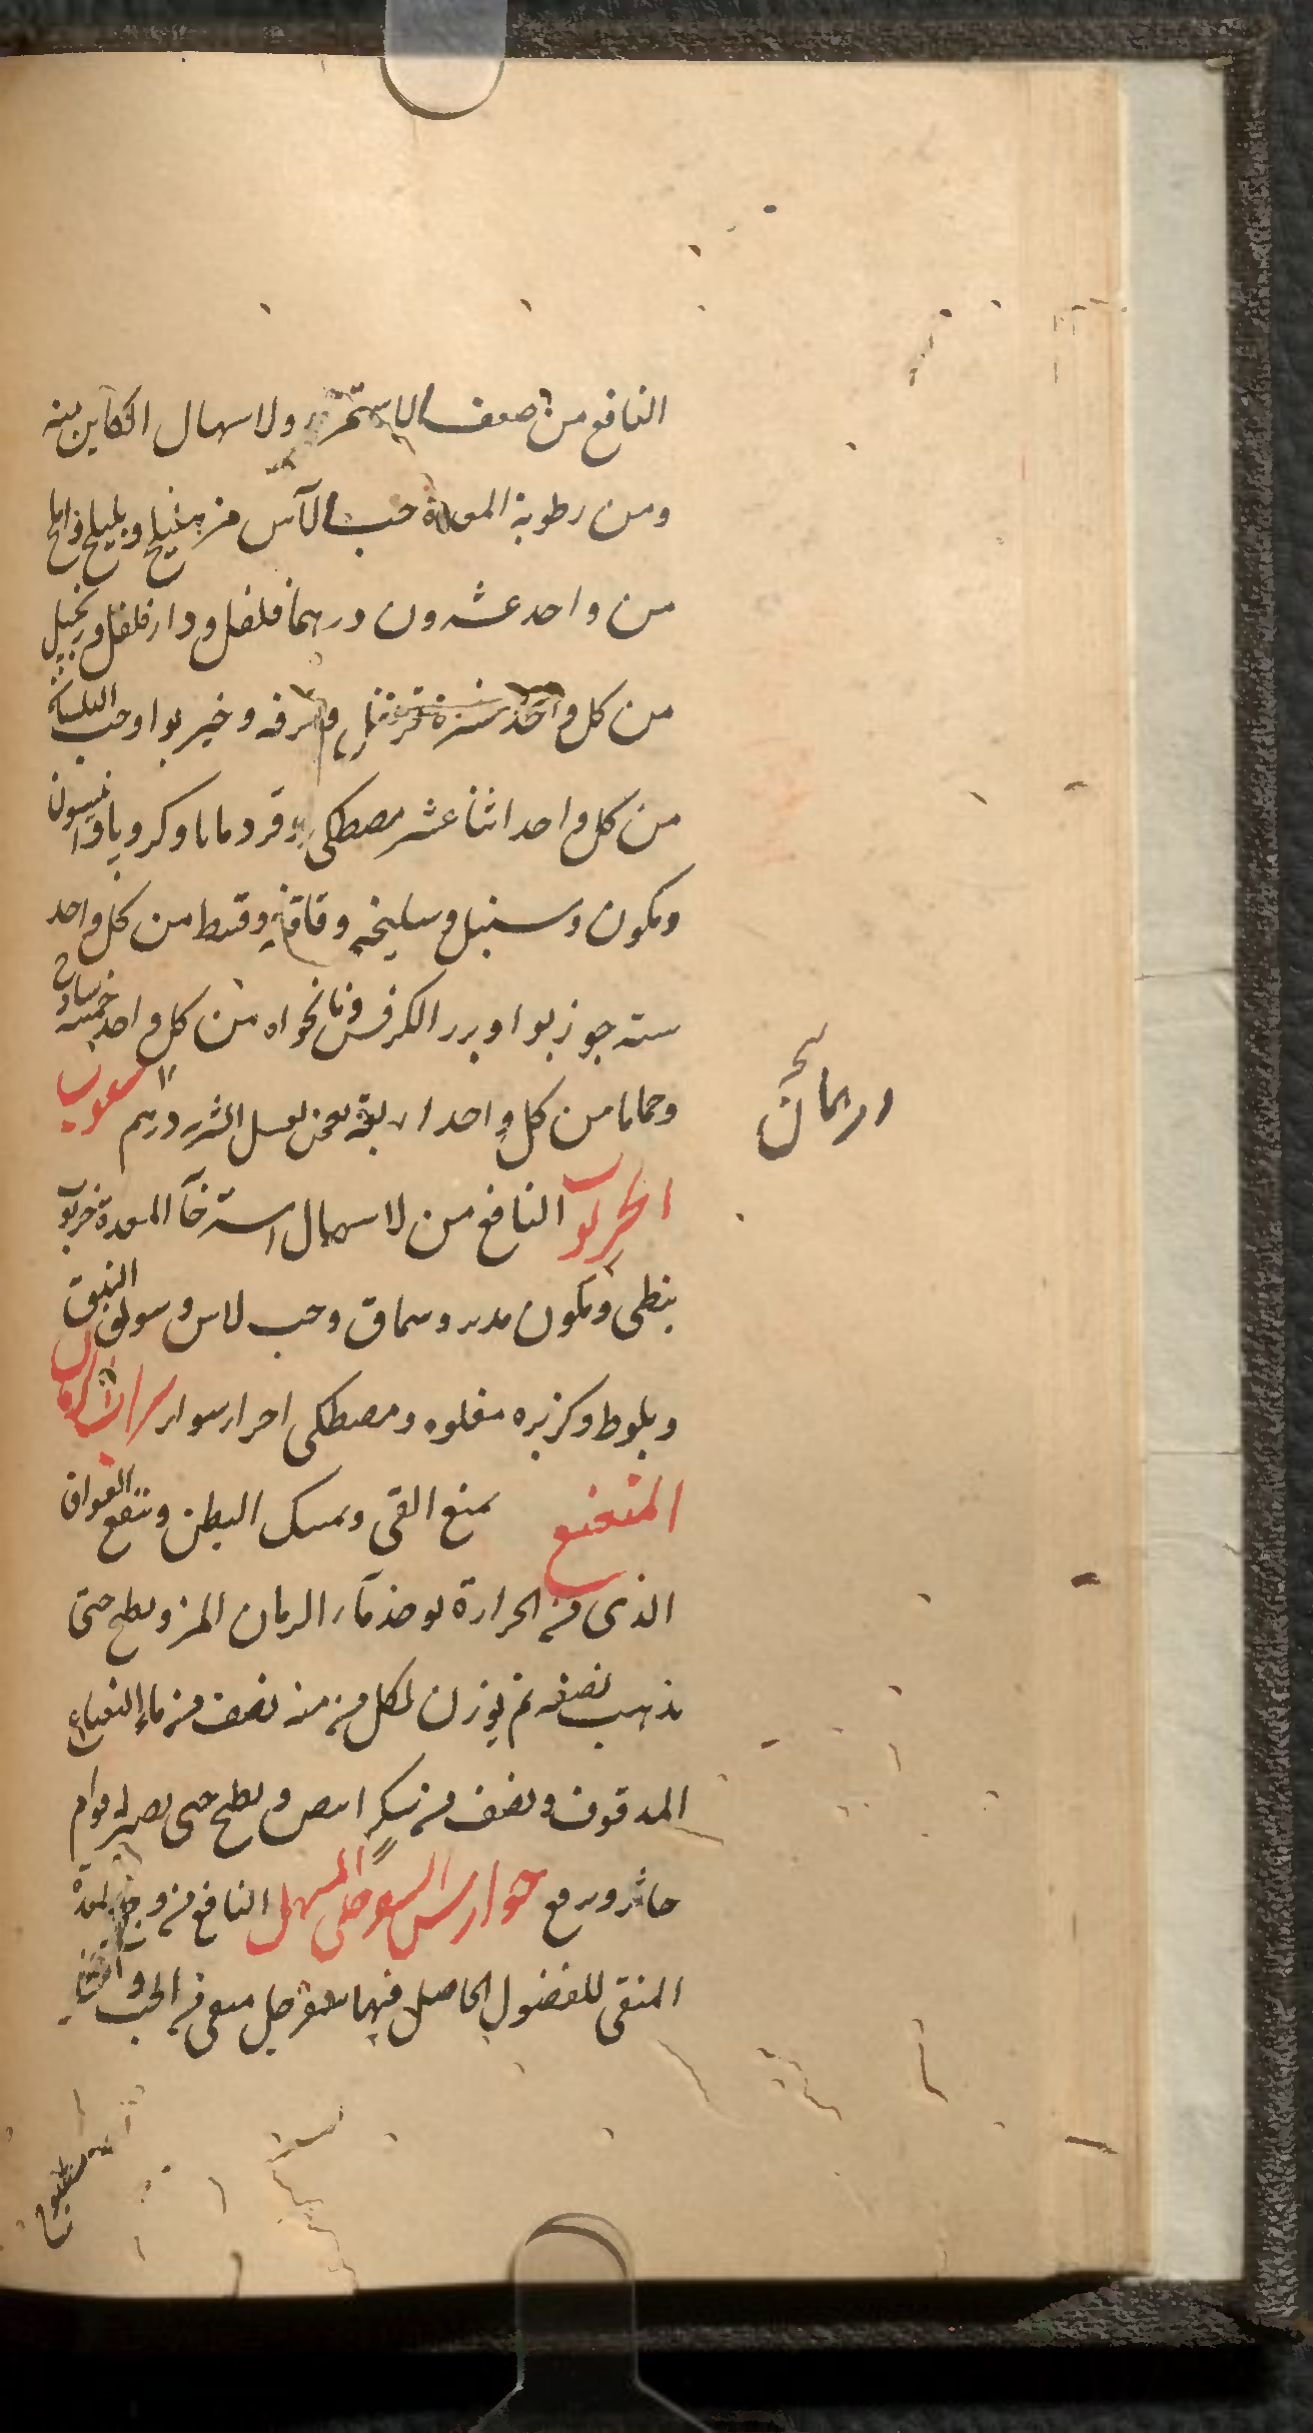 النافع من ضعف الاستمرا ولاسهال الكاين منه
ومن رطوبة المعدة حب الآس
من واحد عشرون درهما فلفل ودارفلفل وزنجبيل
من كل واحد قرفه وخير بوا وحب البلسان
من كل واحد اثنا عشر مصطكى وقردمانا وكرويا وانيسون
وكمون وسنبل وسليخه وقاقله وقسط من كل واحد
سته جوزبوا وبزر الكرفس ونانخواه من كل واحد خمسه سادج
وحماما من كل واحد اربعة يعجن بعسل الشربه درهم سفوف
الخرنوب النافع من لاسهال استرخآ المعدة خرنوب
نبطى وكمون مدبر وسماق وحب لاس وسويق النبق
وبلوط وكزبره مقلوه ومصطكى اجزا سوا شراب الرمان
المنعنع يمنع القى ويمسك البطن وينفع الفواق
الذى من الحرارة يوخذ مآء الرمان المز ويطبخ حتى
يذهب نصفه ثم يوزن لكل من منه نصف من ماء النعناع
المدقوق ونصف من سكر ابيض ويطبخ حتى يصير له قوام
خاثر ويرفع جوارش السفرجلى المسهل النافع من وجع المعدة
المنقى للفضول الحاصل فيها سفرجل منقى من الحب